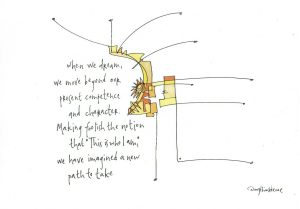 when we dream,
we move beyond our
present competence
and character.
Making foolish the notion
that "This is who I am,"
we have imagined a new
path to take